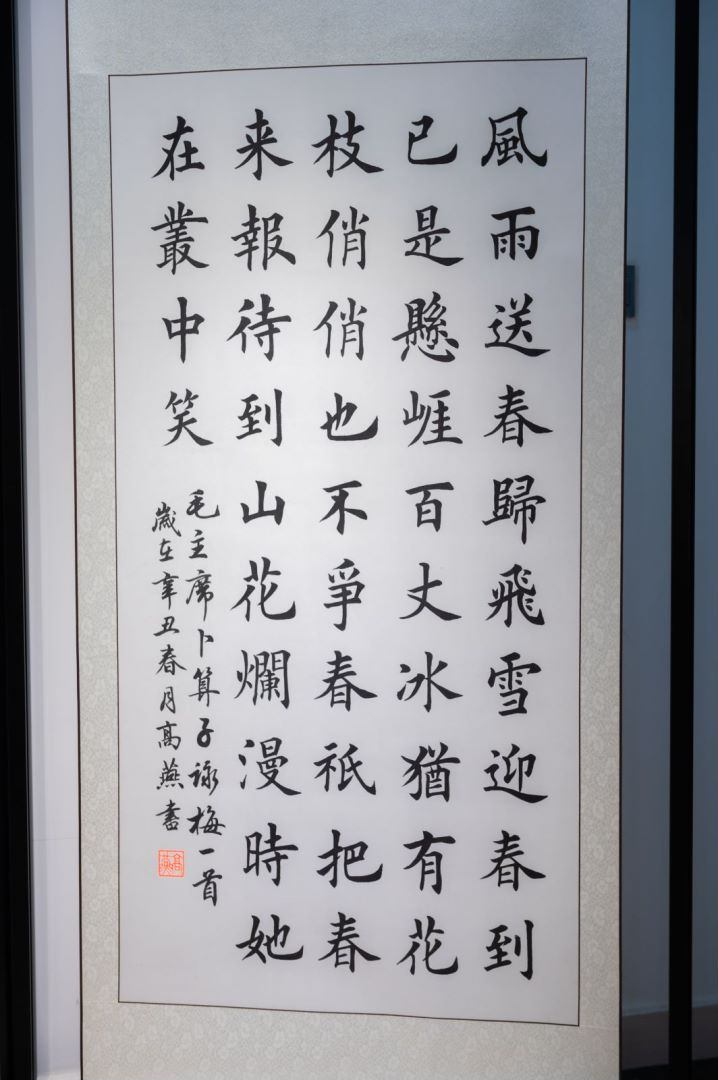 風雨送春歸飛雪迎春到
已是懸崕百丈冰猶有花
枝俏俏也不爭春祇把春
来報待到山花爛漫時她
在叢中笑
毛主席卜算子詠梅一首
歲在辛丑春月高燕書
高燕